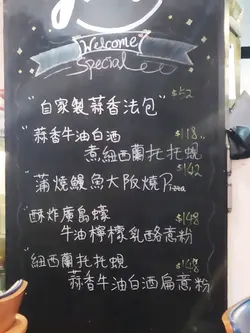 Welcome
Special
"自家製蒜香法包" $52
蒜香牛油白酒 $118
煮紐西蘭扥扥蜆
蒲燒鰻魚大阪燒Pizza $142
酥炸廣島蠔 $148
牛油檸檬乳酪意粉
紐西蘭扥扥蜆 $148
蒜香牛油白酒扁意粉